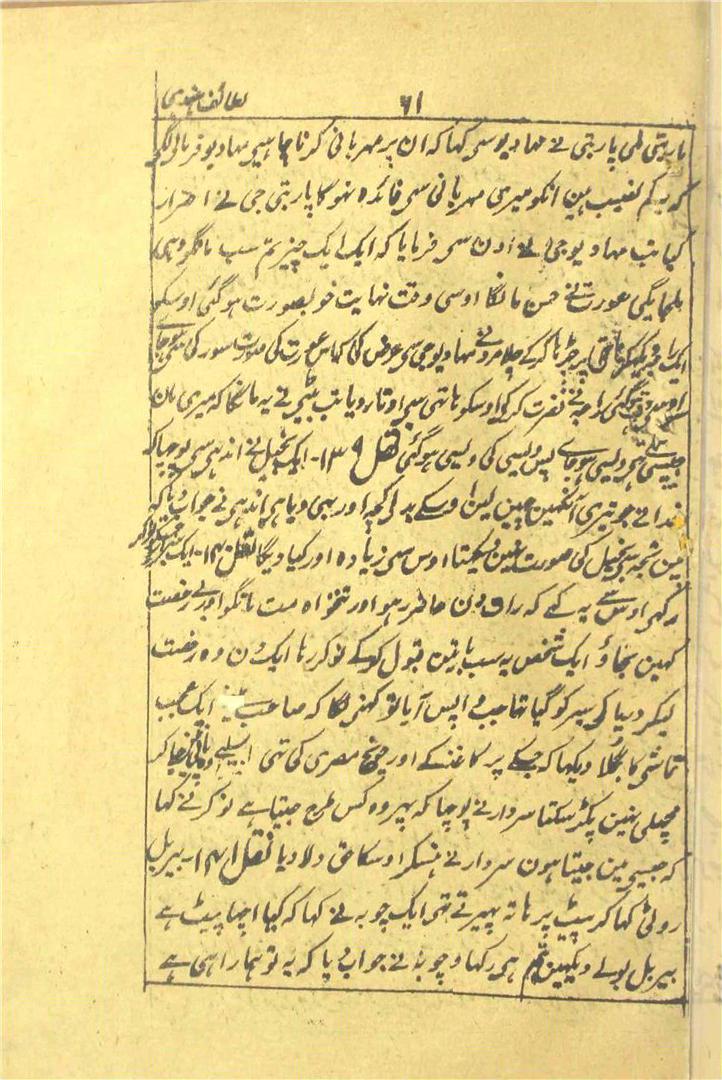 لطائف ہندی ۶۱
پاربتی نے مہادیو سی کہا کہ ان پر مہربانی کرنا چاہیی مہادیو فرمانی لگی
کہ یہ کم نصیب ہین انکو میری مہربانی سی فائدہ نہوگا پاربتی جی نے اصرار
کیا تب مہادیو جی نے اون سی فرمایا کہ ایک ایک چیز تم سب مانگو وہی
ملجایگی عورت نے حسن مانگا اوسی وقت نہایت خوبصورت ہوگئی اوسکو
ایک راجہ دیکھکر ہاتھی پر چڑہا کر کے چلا مرد نے مہادیو جی سی عرض کی کہ اس عورت کی صورت سور کی سی ہوجاے
ہوگئی راجہ نے نفرت کرکے اوسکو ہاتہی سی اوتار دیا تب بیٹی نے یہ مانگا کہ میری مان
جیسی تہی ویسی ہوجاے پس ویسی کی ویسی ہوگئی نقل ۱۳۹- ایک بخیل نے اندہی سی پوچہا کہ
خدا نے جو تیری آنکہین چہین لین اوسکے بدلی کچہ اور بہی دیا ہی اندہی نے جواب دیا کہ
مین تجہہ سی بخیل کی صورت نہین دیکہتا اوس سی زیادہ اور کیا دیگا نقل ۱۴۰- ایک
رکہی اوس سے یہ کہے کہ رات دن حاضر رہو اور تنخواہ مت مانگو اور بے رخصت
کہین نجاؤ ایک شخص یہ سب باتین قبول کرکے نوکر رہا ایک دن وہ رخصت
لیکر دریا کی سیر کو گیا تہا جب واپس آیا تو کہنی لگا کہ صاحب مین نے ایک عجب
تماشی کا بگلا دیکہا کہ جسکے پر کاغذ کے اور چونچ مصری کی تہی اسلیے وہ پانی مین جا کر
مچہلی نہین پکڑ سکتا سردار نے پوچہا کہ پہر وہ کس طرح جیتا ہے نوکر نے کہا
کہ جیسی مین جیتا ہون سردار نے ہنسکر اوسکا حق دلا دیا نقل ۱۴۱- بیربل
روٹی کہا کر پیٹ پر ہاتہ پہیرتے تہی ایک چوبہ نے کہا کہ کیا اچہا پیٹ ہے
بیربل بولے دیکہین تم ہی رکہا و چوبہ نے جواب دیا کہ یہ تو ہمارا ہی ہے